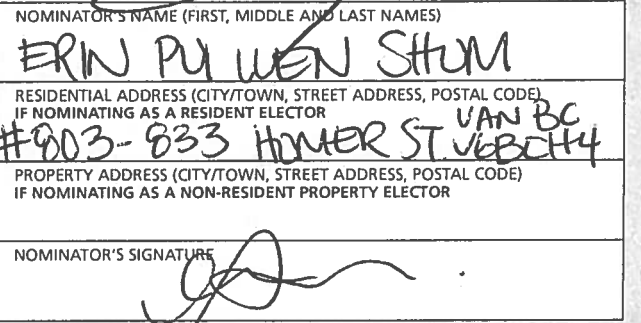 NOMINATOR'S NAME (FIRST, MIDDLE AND LAST NAMES)
ERIN PUI WEN SHUM
RESIDENTIAL ADDRESS (CITY/TOWN, STREET ADDRESS, POSTAL CODE)
IF NOMINATING AS A RESIDENT ELECTOR
VAN BC
#803-833 HOMER ST. V6BCH4
PROPERTY ADDRESS (CITY/TOWN, STREET ADDRESS, POSTAL CODE)
IF NOMINATING AS A NON-RESIDENT PROPERTY ELECTOR
NOMINATOR'S SIGNATURE